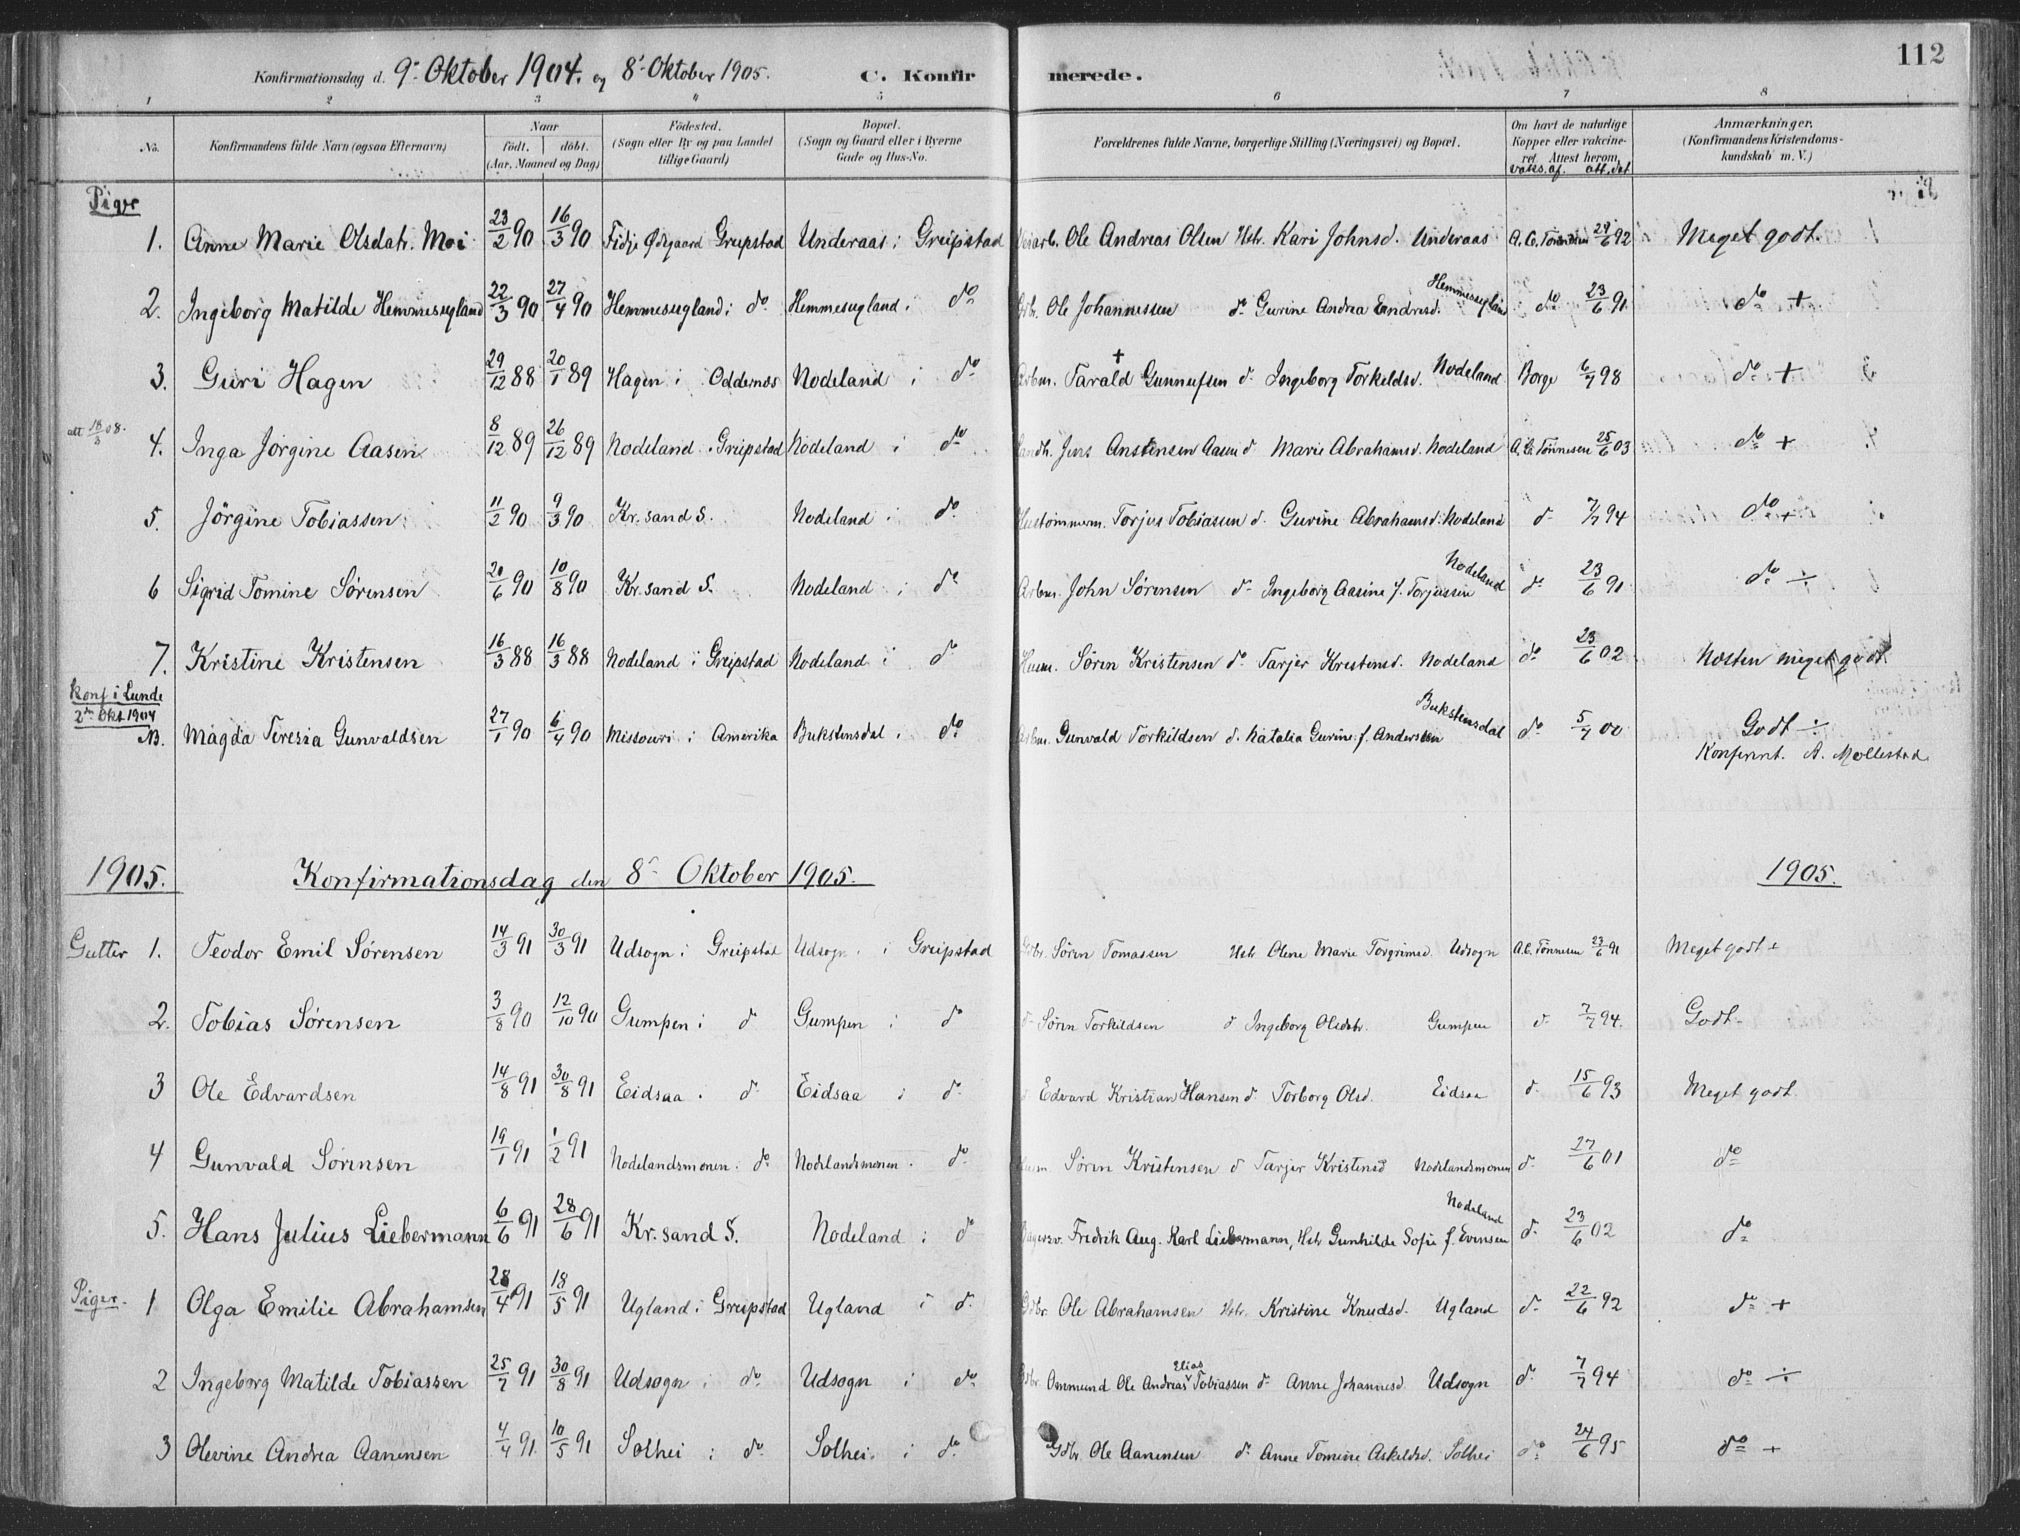 Konfirmationsdag d. 9de Oktober 1904. og 8' Oktober 1905. C. Konfirmerede. 112
1 2 3 4 5 6 7 8
No. Konfirmandens fulde Navn (ogsaa Efternavn) Naar födt. döbt. (Aar, Maaned og Dag) Födested. (Sogn eller By og paa Landet tillige Gaard) Bopæl. (Sogn og Gaard eller i Byerne Gade og Hus-No. Forældrenes fulde Navne, borgerlige Stilling (Næringsvei) og Bopæl. Om havt de naturlige Kopper eller vakcineret. Attest herom. vaks. af. att. dat Anmærkninger. (Konfirmandens Kristendomskundskab m. V.)
Piger
1. Anne Marie Olsdatr. Moi 23/2 90 16/3 90 Fidje Ødegaard Greipstad Underaas i Greipstad Veiarb. Ole Andreas Olsen Hstr. Kari Johnsd. Underaas A. C. Tønnesen 29/6 92 Meget godt.
2. Ingeborg Matilde Hemmesugland 22/3 90 27/4 90 Hemmesugland i do Hemmesugland i do Gdb. Ole Johannessen do Gurine Andrea Endresd. Hemmesugland do 23/6 91. do +
3. Guri Hagen 29/12 88 20/1 89 Hagen i Oddernes Nodeland i do Arbm. Tarald + Gunnufsen d. Ingeborg Torkeldsd. Nodeland Borge 6/7 98 do +
att 18/3 08. 4. Inga Jørgine Aasen 8/12 89 26/12 89 Nodeland i Greipstad Nodeland i do Landh. Jens Anstensen Aasen d Marie Abrahamsd. Nodeland A. C. Tönnesen 25/6 03 do +
5. Jörgine Tobiassen 11/2 90 9/3 90 Kr. sand S. Nodeland i do Hustömmerm. Torjus Tobiassen d. Gurine Abrahamsd. Nodeland d. 7/7 94 do +
6 Sigrid Tomine Sørensen 20/6 90 10/8 90 Kr. sand S. Nodeland i do Arbm. John Sörensen do Ingeborg Aasine f. Torjussen Nodeland do 23/6 91 do ÷
7. Kristine Kristensen 16/3 88 16/3 88 Nodeland i Greipstad Nodeland i d. Husm. Sören Kristensen do Tarjer Kristensd. Nodeland do 23/6 02 Næsten meget godt
Konf i Lunde 2den Okt. 1904
NB. Magda Teresia Gunvaldsen 27/1 90 6/4 90 Missouri i Amerika Bukstensdal i do Arbm. Gunvald Torkildsen d. Natalia Gurine f. Andersen Bukstensdal do 5/7 00 Godt ÷
Konfirmt. A. Mollestad
1905. Konfirmationsdag den 8' Oktober 1905. 1905.
Gutter 1. Teodor Emil Sørensen 14/3 91 30/3 91 Udsogn i Greipstad Udsogn i Greipstad Gdbr. Søren Tomassen Hstr Olene Marie Torgrimsd. Udsogn A.C. Tønnesen 23/6 91 Meget godt +
2. Tobias Sörensen 3/8 90 12/10 90 Gumpen i d Gumpen i d d. Sören Torkildsen d Ingeborg Olsdtr. Gumpen d. 7/7 94. Godt.
3 Ole Edvardsen 14/8 91 30/8 91 Eidsaa i d. Eidsaa i d. d Edvard Kristian Hansen d Torborg Olsd. Eidsaa d. 15/6 93 Meget godt.
4 Gunvald Sörensen 19/1 91 1/2 91 Nodelandsmonen i do Nodelandsmonen i do Husm. Sören Kristensen d Tarjer Kristensd Nodelandsmonen d. 27/6 01 do
5. Hans Julius Liebermann 6/6 91 28/6 91 Kr. sand S. Nodeland i d Fredrik Aug. Karl Liebermann, Hstr Gunhilde Sofie f. Evensen Nodeland d. 23/6 02 do
Piger. 1 Olga Emilie Abrahamsen 28/4 91 18/5 91 Ugland i Greipstad Ugland i d. Gdbr. Ole Abrahamsen Hstr. Kristine Knudsd. Ugland d. 22/6 92 do +
2 Ingeborg Matilde Tobiassen 25/7 91 30/8 91 Udsogn i do Udsogn i do Gdbr. Ommund Ole Andreas Elias Tobiassen do Anne Johannesd. Udsogn d. 7/7 94 do ÷
3 Olevine Andrea Aanensen 4/4 91. 10/5 91 Solhei i do Solhei i do Gdbr. Ole Aanensen do Anne Tomine Askeldsd. Solhei do 24/6 95 do +